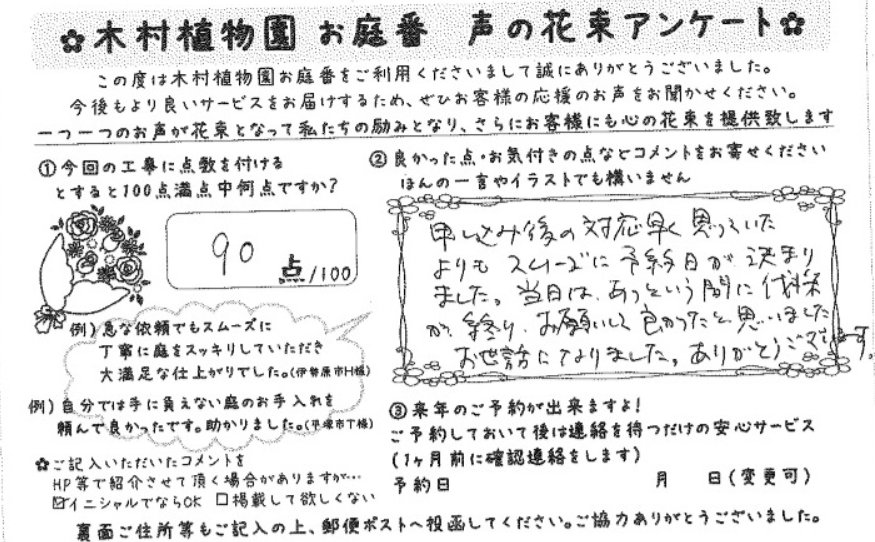 ✿木村植物園 お庭番 声の花束アンケート✿
この度は木村植物園お庭番をご利用くださいまして誠にありがとうございました。
今後もより良いサービスをお届けするため、ぜひお客様の応援のお声をお聞かせください。
一つ一つのお声が花束となって私たちの励みとなり、さらにお客様にも心の花束を提供致します
①今回の工事に点数を付ける
とすると100点満点中何点ですか?
90 点/100
例)急な依頼でもスムーズに
丁寧に庭をスッキリしていただき
大満足な仕上がりでした。(伊勢原市H様)
例)自分では手に負えない庭のお手入れを
頼んで良かったです。助かりました。(平塚市T様)
✿ご記入いただいたコメントを
HP等で紹介させて頂く場合がありますが…
☑イニシャルでならOK □掲載して欲しくない
②良かった点・お気付きの点などコメントをお寄せください
ほんの一言やイラストでも構いません
申し込み後の対応早く思っていた
よりもスムーズに予約日が決まり
ました。当日は、あっという間に伐採
が、終り、お願いして良かったと思いました
お世話になりました。ありがとうございます。
③来年のご予約が出来ますよ!
ご予約しておいて後は連絡を待つだけの安心サービス
(1ヶ月前に確認連絡をします)
予約日 月 日(変更可)
裏面ご住所等もご記入の上、郵便ポストへ投函してください。ご協力ありがとうございました。